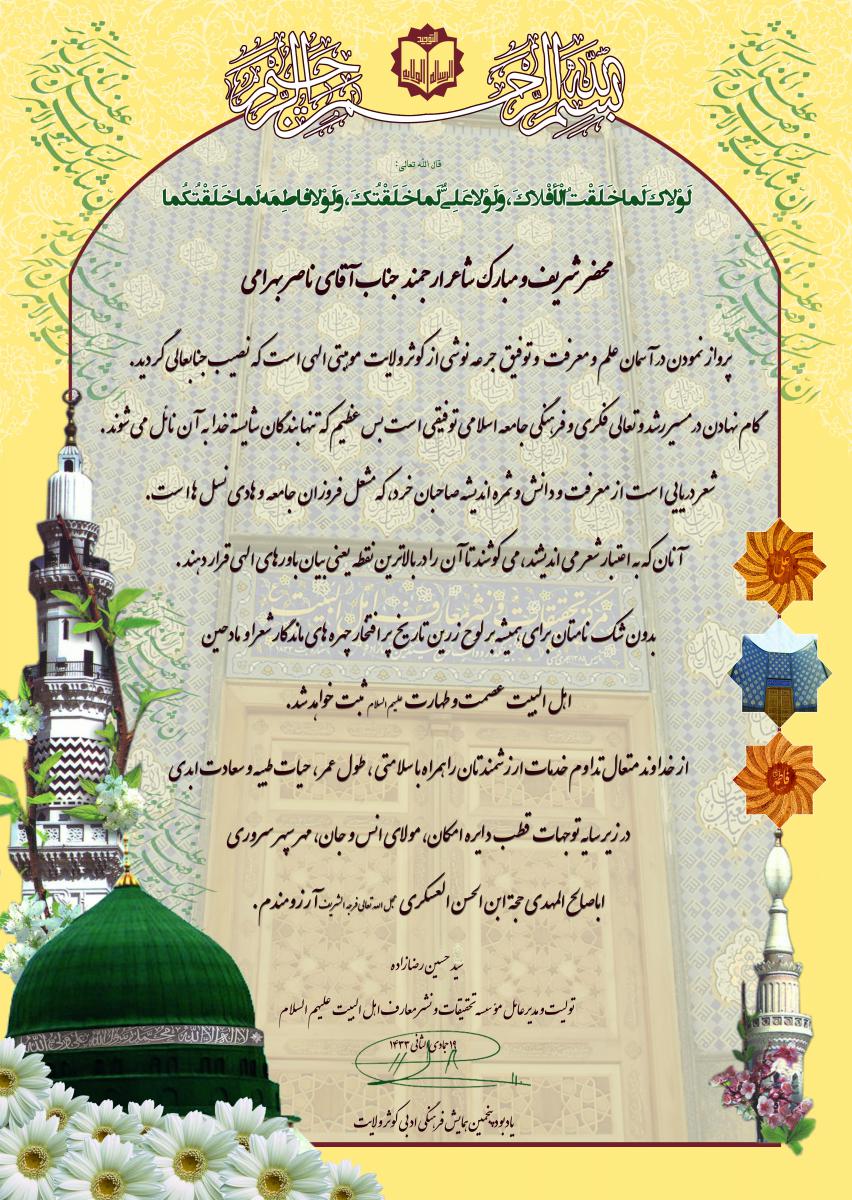 بسم الله الرحمن الرحیم
التوحید
الرسالة الولایة
قال الله تعالی:
لَوْلاکَ لَما خَلَقْتُ الْأَفْلاکَ، وَلَوْلا عَلِیٌّ لَما خَلَقْتُکَ، وَلَوْلا فاطِمَه لَما خَلَقْتُکُما
محضر شریف و مبارک شاعر ارجمند جناب آقای ناصر بهرامی
پرواز نمودن در آسمان علم و معرفت و توفیق جرعه نوشی از کوثر ولایت موهبتی الهی است که نصیب جنابعالی گردید.
گام نهادن در مسیر رشد و تعالی فکری و فرهنگی جامعه اسلامی توفیقی است بس عظیم که تنها بندگان شایسته خدا به آن نائل می شوند.
شعر دریایی است از معرفت و دانش و ثمره اندیشه صاحبان خرد، که مشعل فروزان جامعه و هادی نسل ها است.
آنان که به اعتبار شعر می اندیشند، می کوشند تا آن را در بالاترین نقطه یعنی بیان باورهای الهی قرار دهند.
بدون شک نامتان برای همیشه بر لوح زرین تاریخ پر افتخار چهره های ماندگار شعرا و مادحین
اهل البیت عصمت و طهارت علیهم السلام ثبت خواهد شد.
از خداوند متعال تداوم خدمات ارزشمندتان را همراه با سلامتی، طول عمر، حیات طیبه و سعادت ابدی
در زیر سایه توجهات قطب دایره امکان، مولای انس و جان، مهر سپهر سروری
اباصالح المهدی حجة ابن الحسن العسکری عجل الله تعالی فرجه الشریف آرزومندم.
سید حسین رضازاده
تولیت و مدیر عامل مؤسسه تحقیقات و نشر معارف اهل البیت علیهم السلام
۱۹ جمادی الثانی ۱۴۳۳
یادبود پنجمین همایش فرهنگی ادبی کوثر ولایت
علی
فاطمه